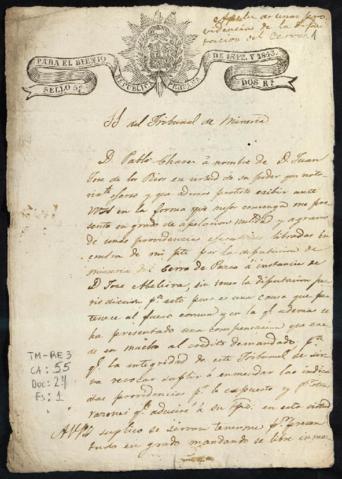 Apela de unas pro
videncias de la Dipu
tacion del Cerro
PARA EL BIENIO DE 1842. Y 1843.
SELLO 5º. REPUBLICA PERUANA DOS Rs.
SS del Tribunal de Mineria
D. Pablo Chavez á nombre de D. Juan
Jose de los Rios en virtud de su poder que
y que protesto exibir ante
en la forma que mejor convenga me pre
sento en grado de apelacion nulidad y agravio
de unas providencias libradas en
de mi pte por la diputacion de
mineria del Cerro de Pasco á instancia de
D. Jose en tomo la diputacion ju
risdiccion pª. este pues es una causa que per
tenece al fuero comun y en la ql. ademas se
ha presentado una compensacion que
en mucho al credito demandado, pª.
ql. la integridad de este Tribunal se sir
va revocar suplir ó enmendar las indica
das providencias pr. lo expuesto y pr. otras
razones ql. aduciré á su tpo. en esta virtud
A VSS suplico se sirvan tenerme pr. presen
tado en grado mandando se libre
TM-RE 3
CA: 55
DOC: 27
FS: 1